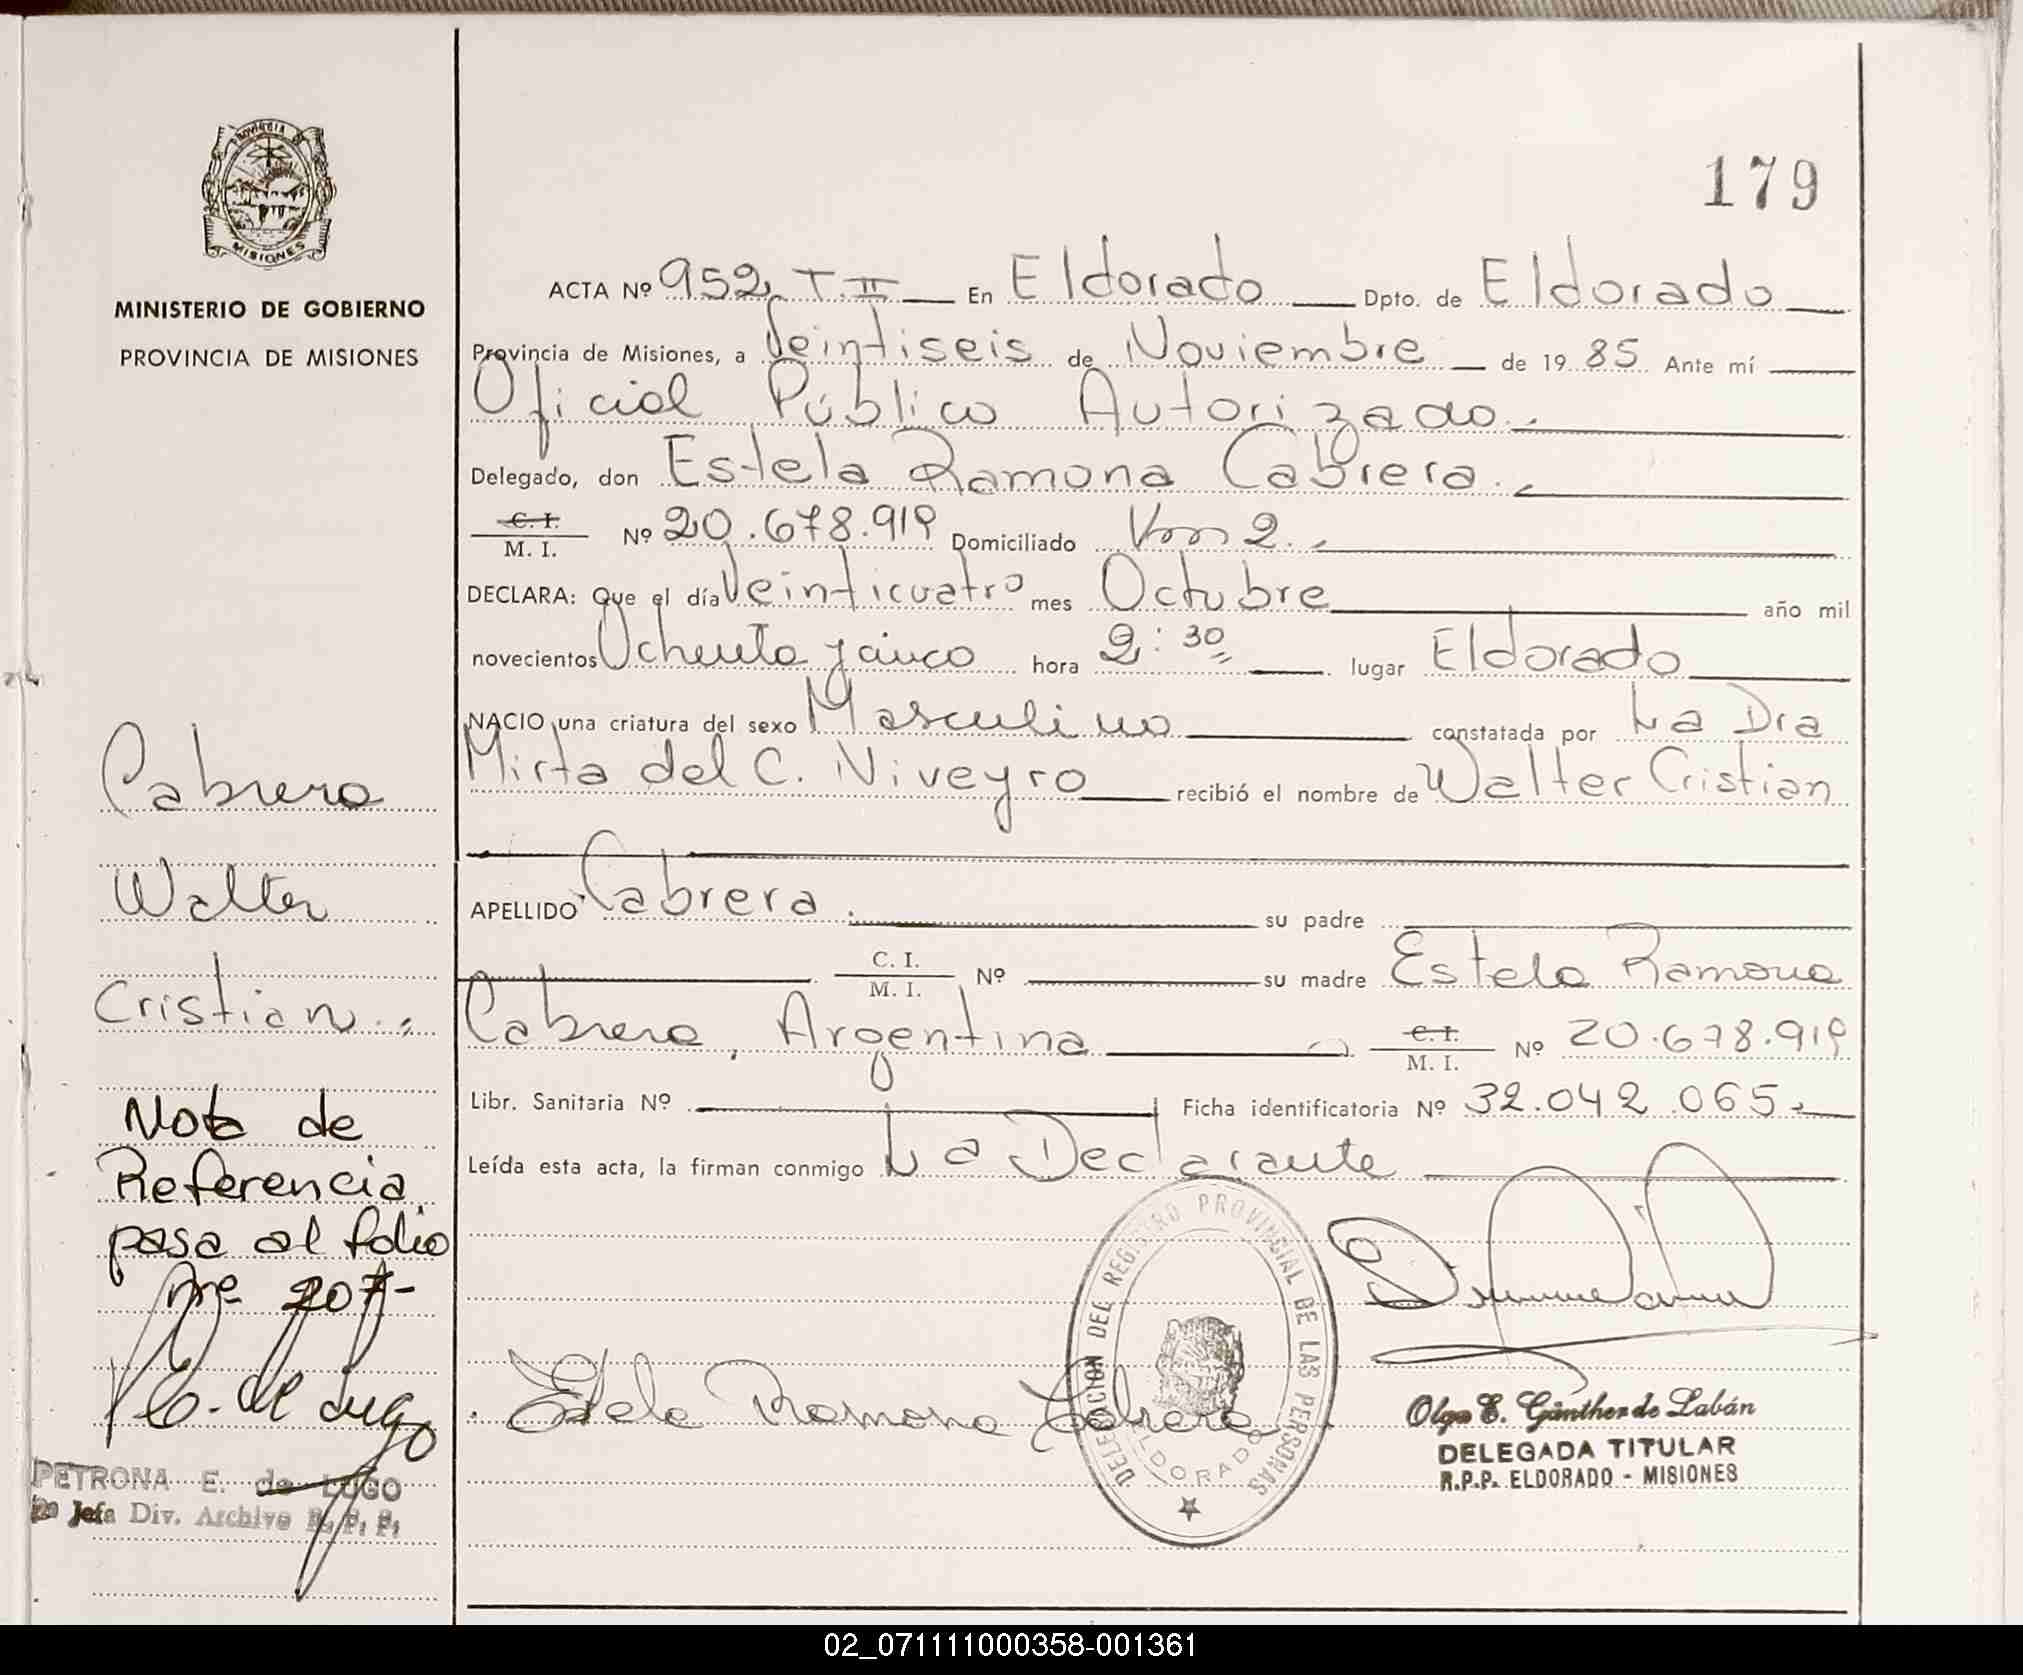 PROVINCIA DE
MISIONES
MINISTERIO DE GOBIERNO
PROVINCIA DE MISIONES
179
ACTA Nº 952 T. II En Eldorado Dpto. de Eldorado
Provincia de Misiones, a Veintiseis de Noviembre de 19 85 Ante mí
Oficial Público Autorizado.
Delegado, don Estela Ramona Cabrera.
C. I.
M. I. Nº 20.678.919 Domiciliado Km 2.
DECLARA: Que el día Veinticuatro mes Octubre año mil
novecientos Ochenta y cinco hora 2:30 lugar Eldorado
NACIO una criatura del sexo Masculino constatada por La Dra
Mirta del C. Niveyro recibió el nombre de Walter Cristian
APELLIDO Cabrera su padre
C. I.
M. I. Nº su madre Estela Ramona
Cabrera, Argentina C. I.
M. I. Nº 20.678.919
Libr. Sanitaria Nº Ficha identificatoria Nº 32.042.065
Leída esta acta, la firman conmigo La Declarante
Cabrera
Walter
Cristian
Nota de
Referencia
pasa al folio
Nre 207-
E. de Lugo
PETRONA E. de LUGO
Jefa Div. Archivo R. P. P.
Estela Ramona Cabrera
DELEGACION DEL REGISTRO PROVINCIAL DE LAS PERSONAS
ELDORADO
Olga E. Günther de Labán
DELEGADA TITULAR
R.P.P. ELDORADO - MISIONES
02_071111000358-001361